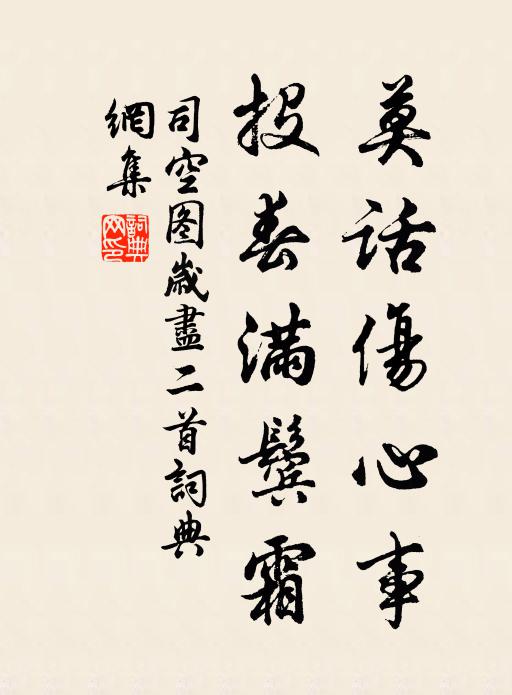 莫話傷心事
投春滿鬢霜
司空图歲盡二首詞典
網集
詞典网印